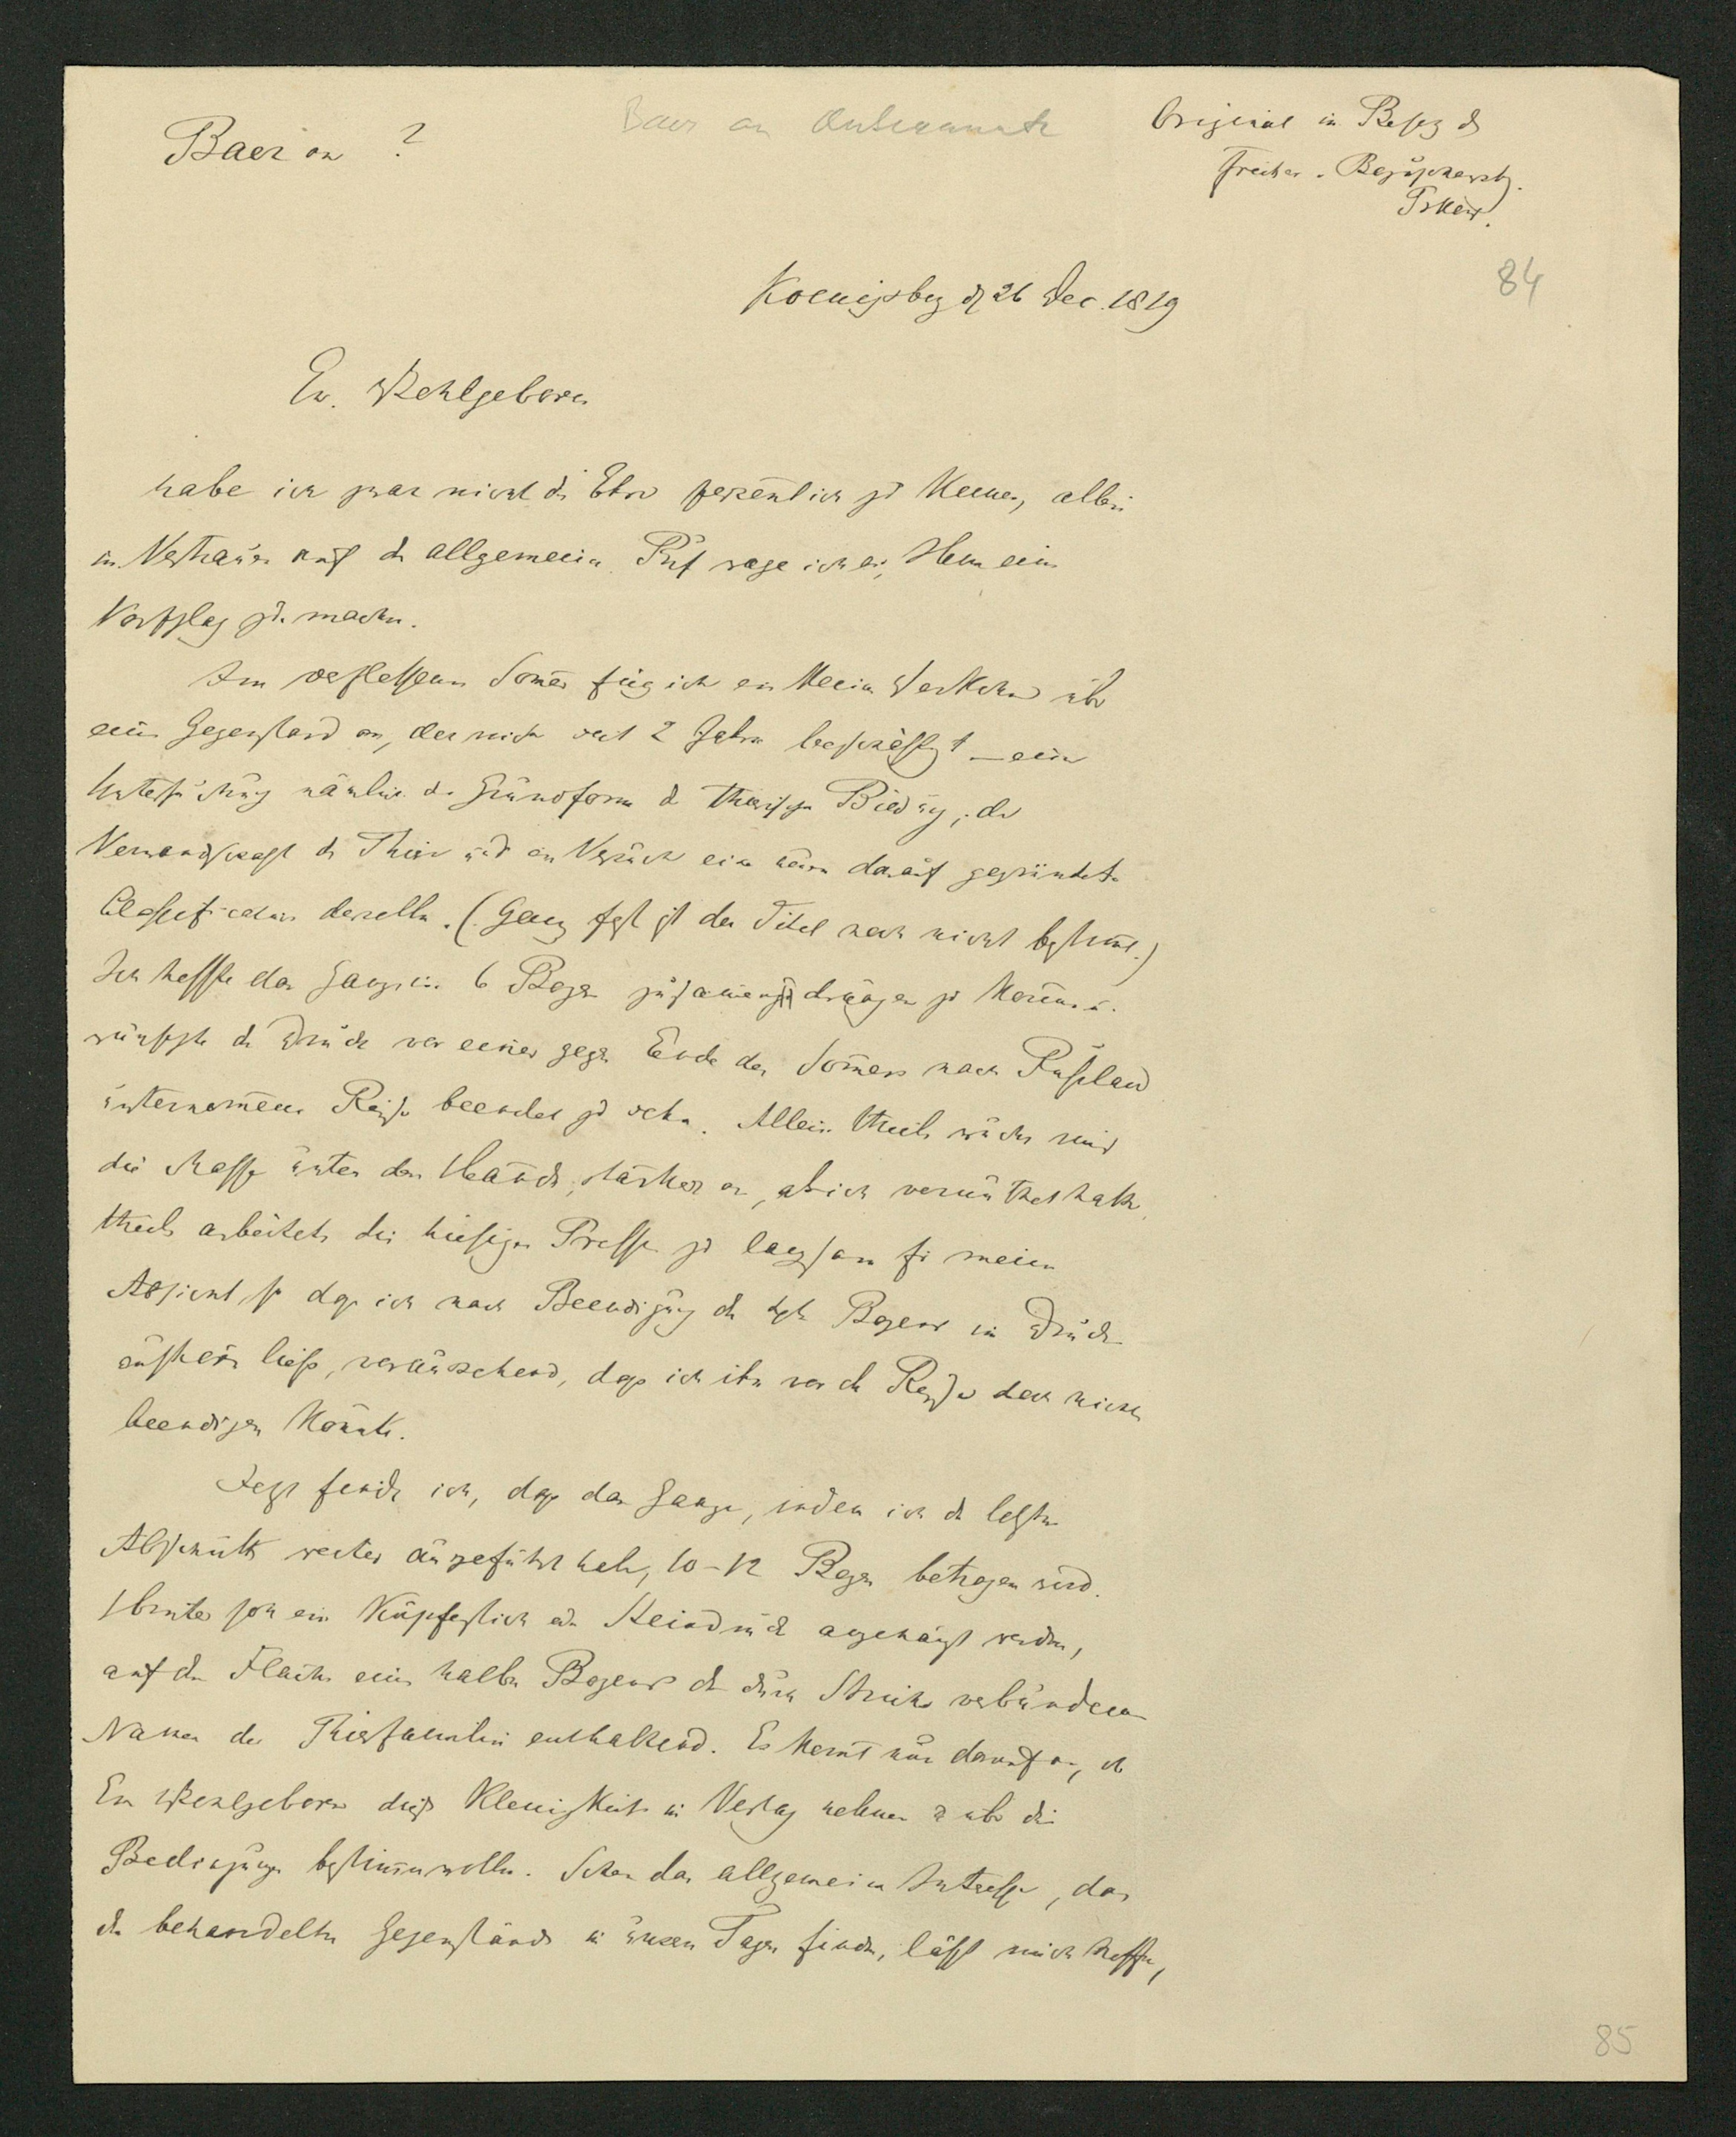 Baer an ?
Baer an Unbekannte
Original in Besitz d
Freiherr
Pskow.
84
Koenigsberg d 26 Dec. 1819
Ew. Wohlgeboren
habe ich zwar nicht die Ehre persönlich zu kennen, allein
in Vertrauen auf den allgemeinen Ruf wage ich es, Ihnen einen
Vorschlag zu machen.
Im verflossenen Somer fing ich ein kleines Werkchen über
einen Gegenstand an, der mich seit 2 Jahren beschäftigt – eine
Untersuchung nämlich der Grundform der thierischen Bildung, der
Verwandschaft der Thiere und ein Versuch einer neuen darauf gegründeten
Classification derselben. (Ganz fest ist der Titel noch nicht bestimmt.)
Ich hoffte das Ganze in 6 Bogen zusamendrängen zu können u.
wünschte den Druck vor einer gegen Ende des Somers nach Russland
unternomenen Reise beendet zu sehen. Allein theils wuchs mir
die Masse unter den Händen stärker an, als ich vermuthet hatte,
theils arbeitete die hiesige Presse zu langsam für meine
Absicht, so dass ich nach Beendigung des Bogens im Druck
aufhören liess, voraussehend, dass ich ihn vor der Reise doch nicht
beendigen könnte.
Jetzt finde ich, dass das Ganze, indem ich den letzten
Abschnitt weiter ausgeführt habe, 10–12 Bogen betragen wird.
Hinten soll ein Kupferstich oder Steindruck angehängt werden,
auf der Fläche eines halben Bogens die durch Striche verbundenen
Namen der Thierfamilien enthaltend. Es komt nur darauf an, ob
Ew Wohlgeboren diese Kleinigkeit in Verlag nehmen u über die
Bedingungen bestimmen wollen. Schon das allgemeine Interesse, das
die behandelten Gegenstände in unsern Tagen finden, lässt mich hoffen,
85